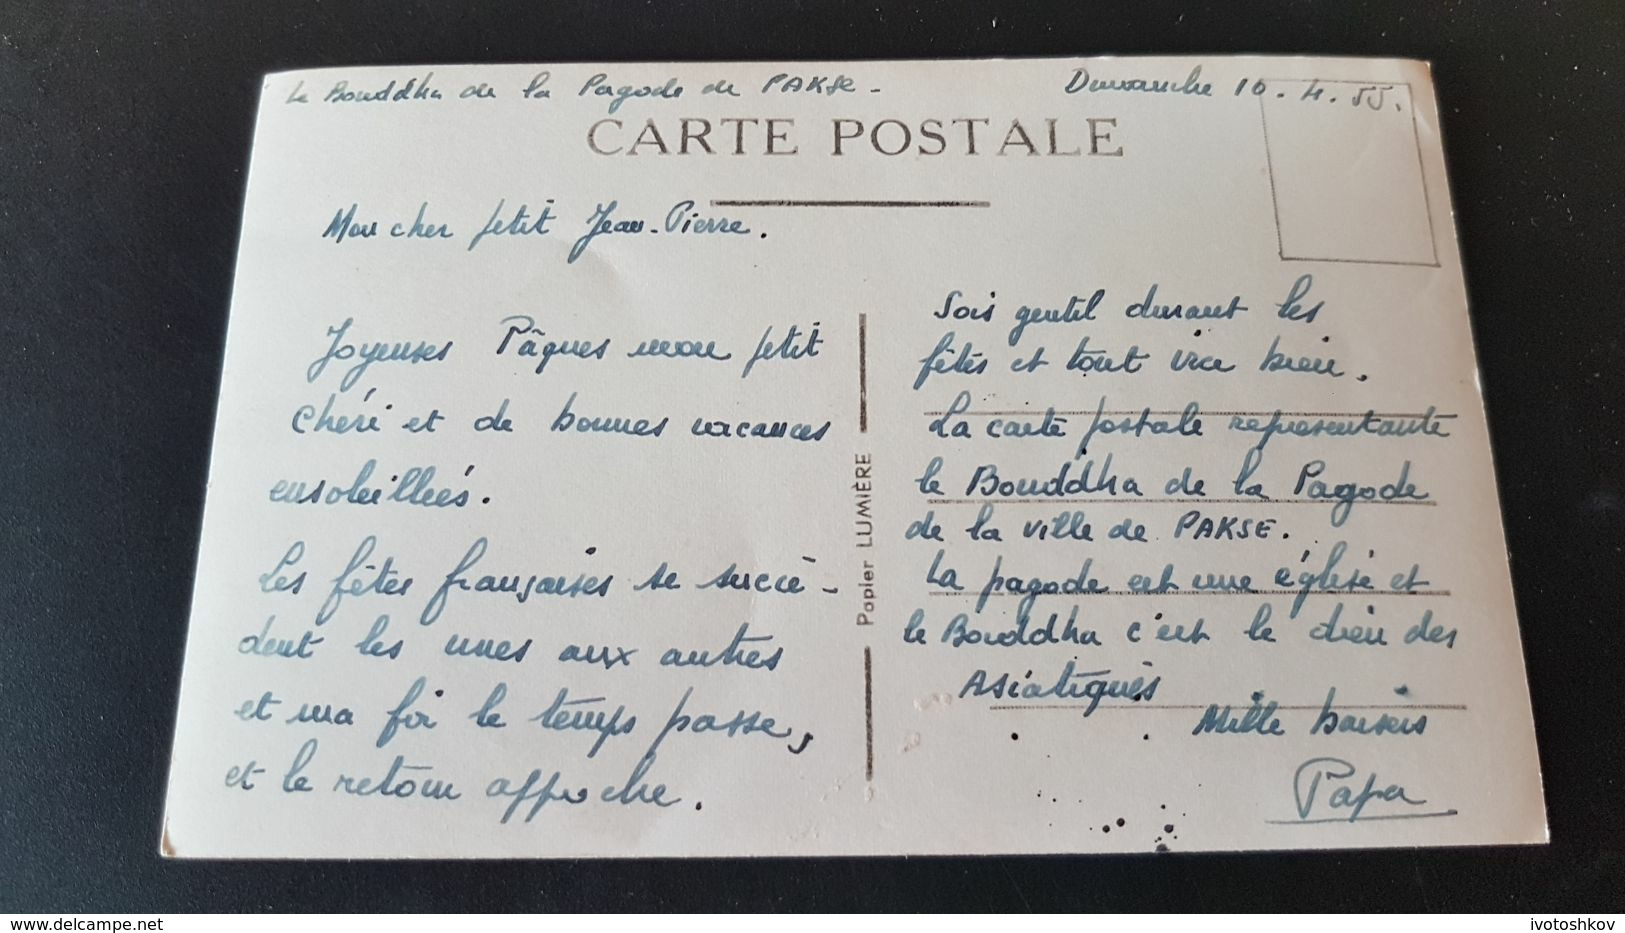 Le Bouddha de la Pagode de PAKSE -
Dimanche 10.4.55.
CARTE POSTALE
Mon cher petit Jean-Pierre.
Joyeuses Pâques mon petit
chéri et de bonnes vacances
ensoleillées.
Les fêtes françaises se succè-
dent les unes aux autres
et ma foi le temps passe,
et le retour approche.
Papier LUMIÈRE
Sois gentil durant les
fêtes et tout ira bien.
La carte postale representante
le Bouddha de la Pagode
de la ville de PAKSE.
La pagode est une église et
le Bouddha c'est le dieu des
Asiatiques
Mille baisers
Papa
delcampe.net
ivotoshkov